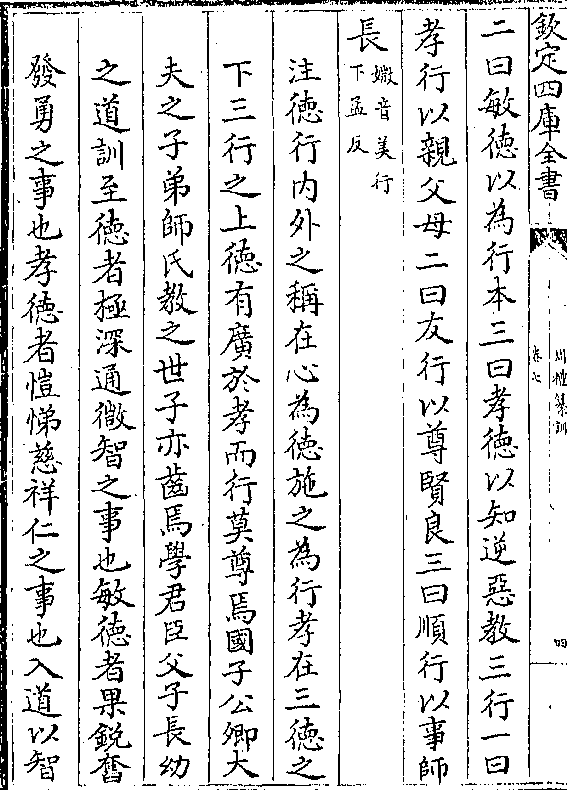 欽定四庫全書
周禮纂訓
卷七
四
二曰敏徳以為行本三曰孝徳以知逆惡教三行一曰
孝行以親父母二曰友行以尊賢良三曰順行以事師
長媺音美行下孟反
注徳行内外之稱在心為徳施之為行孝在三徳之
下三行之上徳有廣於孝而行莫尊焉國子公卿大
夫之子弟師氏教之世子亦齒焉學君臣父子長幼
之道訓至徳者極深通微智之事也敏徳者果鋭奮
發勇之事也孝徳者愷悌慈祥仁之事也入道以智